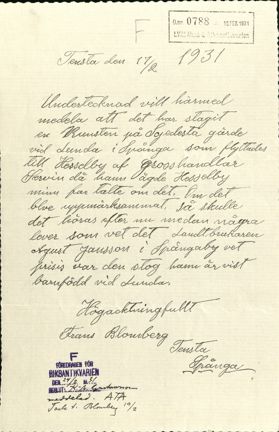 F
D.nr 0788 12 FEB. 1931
Tensta den 17/2 1931
Undertecknad vill härmed
medela att det har stagit
en Runsten på Gjedesta gärde
vid Lunda i Spånga som flyttades
till Hesselby af Grosshandlar
Fervin då hann ägde Hesselby
min far talte om det. Om det
blev uppmärksammat, så skulle
det höras efter nu medan några
lever som vet det Landtbrukaren
Agust Jansson i Spångaby vet
prisis var den stog hann är vist
barnfödd vid Lunda.
Högacktningfullt
Frans Blomberg
Tensta
Spånga
F
FÖREDRAGEN FÖR
RIKSANTIKVARIEN
DEN
BESLUT:
meddelad. ATA
Blomberg